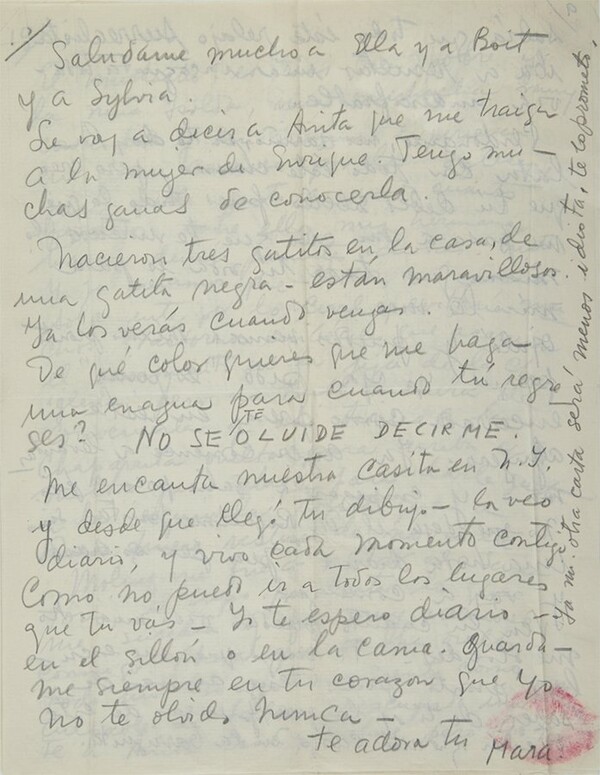 Saludame mucho a Ella y a Boit
y a Sylvia.
Le voy a decir a Anita que me traiga
a la mujer de Enrique. Tengo mu-
chas ganas de conocerla.
Nacieron tres gatitos en la casa, de
una gatita negra - están maravillosos.
Ya los verás cuando vengas.
De qué color quieres que me haga
una enagua para cuando tú regre
ses? NO SE TE OLVIDE DECIRME.
Me encanta nuestra casita en N.Y.
y desde que llegó tu dibujo - la veo
diario, y vivo cada momento contigo
Como no puedo ir a todos los lugares
que tu vás - Yo te espero diario -
en el sillón o en la cama. Guarda-
me siempre en tu corazon que yo
no te olvido nunca -
te adora tu Mara.
Ya mi otra carta será menos idiota, te lo prometo.